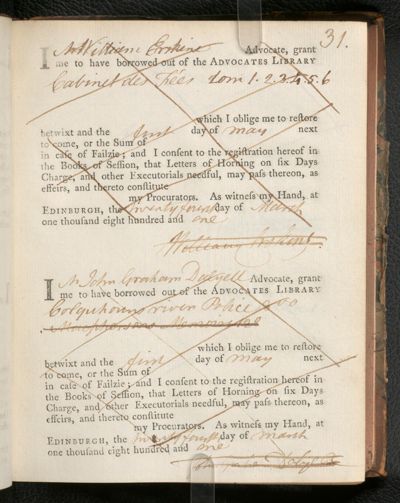 31.
I Mr William Erskine Advocate, grant
me to have borrowed out of the ADVOCATES LIBRARY
Cabinet des Fées tom 1. 2. 3. 4. 5. 6
which I oblige me to reſtore
betwixt and the first day of may next
to come, or the Sum of
in caſe of Failzie; and I conſent to the regiſtration hereof in
the Books of Seſſion, that Letters of Horning on ſix Days
Charge, and other Executorials needful, may paſs thereon, as
effeirs, and thereto conſtitute
my Procurators. As witneſs my Hand, at
EDINBURGH, the twenty fourth day of March
one thouſand eight hundred and one
William Erskine
I Mr John Graham Dalyell Advocate, grant
me to have borrowed out of the ADVOCATES LIBRARY
Colquhoun river Police 8vo
which I oblige me to reſtore
betwixt and the first day of may next
to come, or the Sum of
in caſe of Failzie; and I conſent to the regiſtration hereof in
the Books of Seſſion, that Letters of Horning on ſix Days
Charge, and other Executorials needful, may paſs thereon, as
effeirs, and thereto conſtitute
my Procurators. As witneſs my Hand, at
EDINBURGH, the twenty fourth day of march
one thouſand eight hundred and one